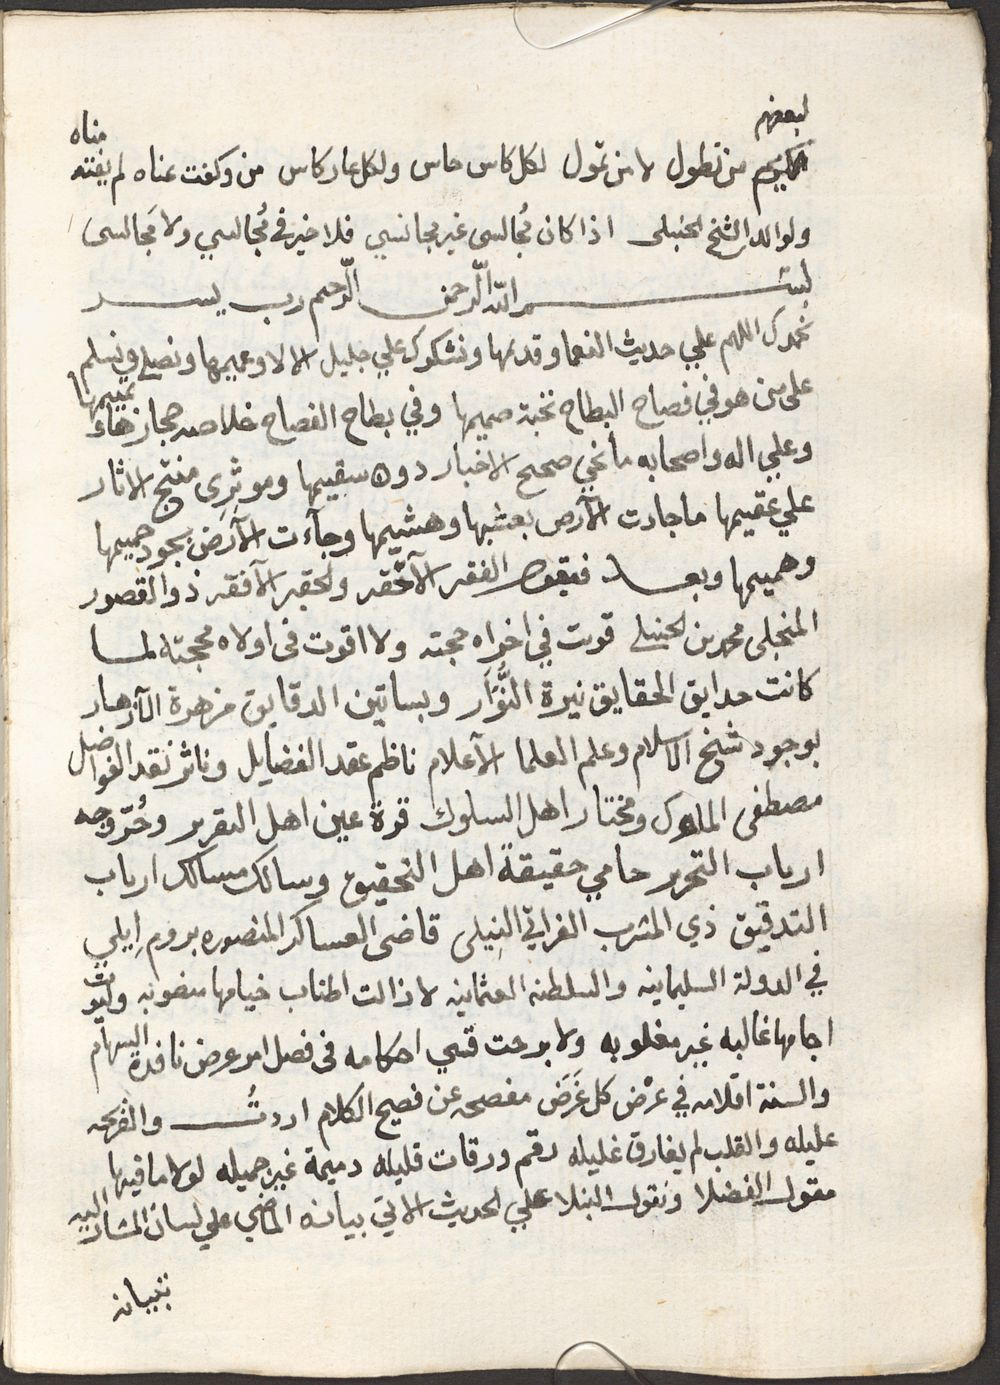 لبعضهم
الكريم من تطول لا من تمول لكل كاس حاس ولكل عار كاس من وكفت عناه لم يفته مناه
ولوالد الشيخ الحنبلى اذا كان مُجالسى غير مجانسي فلا خير في مُجالسي ولا مَجالسى
بسم الله الرحمن الرحيم رب يسر
نحمدك اللهم علي حديث النعما وقديمها ونشكرك علي جليل الالا وعميمها ونصلي ونسلم
على من هو في فصاح البطاح نخبة صميمها وفي بطاح الفصاح خلاصه حجازها وتميمها
وعلي اله واصحابه مانحي صحيح الاخبار دون سقيمها وموثرى منتج الاثار
علي عقيمها ما جادت الارض بعشبها وهشيمها وجآءت الآرض بجود حميمها
وهميمها وبعد فيقول الفقير الآحقر والحقير الآفقر ذو القصور
المنجلى محمد بن الحنبلي قويت في اخراه حجته ولا اقوت فى اولاه محجته لما
كانت حدايق الحقايق نيرة النُّوَّار وبساتين الدقايق مزهرة الآزهار
بوجود شيخ الاسلام وعلم العلما الآعلام ناظم عقد الفضايل وناثر نقد الفواضل
مصطفى الملوك ومختار اهل السلوك قرة عين اهل التقرير وحُرّ وجه
ارباب التحرير حامي حقيقة اهل التحقيق وسالك مسالك ارباب
التدقيق ذي المشرب الفراتي النيلى قاضى العساكر المنصوره بروم ايلي
في الدولة السليمانيه والسلطنه العثمانيه لا زالت اطناب خيامها منصوبه وليوث
اجامها غالبه غير مغلوبه ولا برحت قسي احكامه فى فصل امر عرض نافذة السهام
والسنة اقلامه في عرْض كل غَرَض مفصحه عن فصيح الكلام اردتُ والقريحه
عليله والقلب لم يفارق غليله رقم ورقات قليله دميمة غير جميله لولا ما فيها
مقول الفضلا ونقول النبلا علي الحديث الاتي بيانه الماضي علي لسان المشار اليه
تبيانه